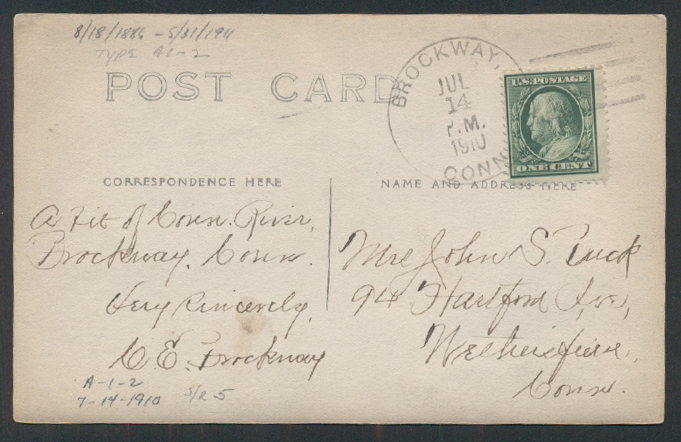 8/18/1886 - 5/31/1911
TYPE A1-2
POST CARD
BROCKWAY,
JUL
14
P.M.
1910
CONN
U.S. POSTAGE
ONE CENT
CORRESPONDENCE HERE
NAME AND ADDRESS HERE
A Bit of Conn. River,
Brockway. Conn.
Very Sincerely,
C E. Brockway
Mrs John S. Buck
94 Hartford Ave,
Wethersfield,
Conn.
A-1-2
7-14-1910
S/R 5